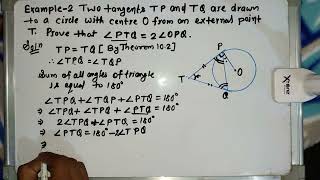 Example-2 Two tangents TP and TQ are drawn
to a circle with centre O from an external point
T. Prove that ∠PTQ = 2∠OPQ.
Soln
TP = TQ [By Theorem 10.2]
∴ ∠TPQ = ∠TQP
Sum of all angles of triangle
is equal to 180°
∠TPQ + ∠TQP + ∠PTQ = 180°
⇒ ∠TPQ + ∠TPQ + ∠PTQ = 180°
⇒ 2∠TPQ + ∠PTQ = 180°
⇒ ∠PTQ = 180° - 2∠TPQ
⇒
P
T
O
Q